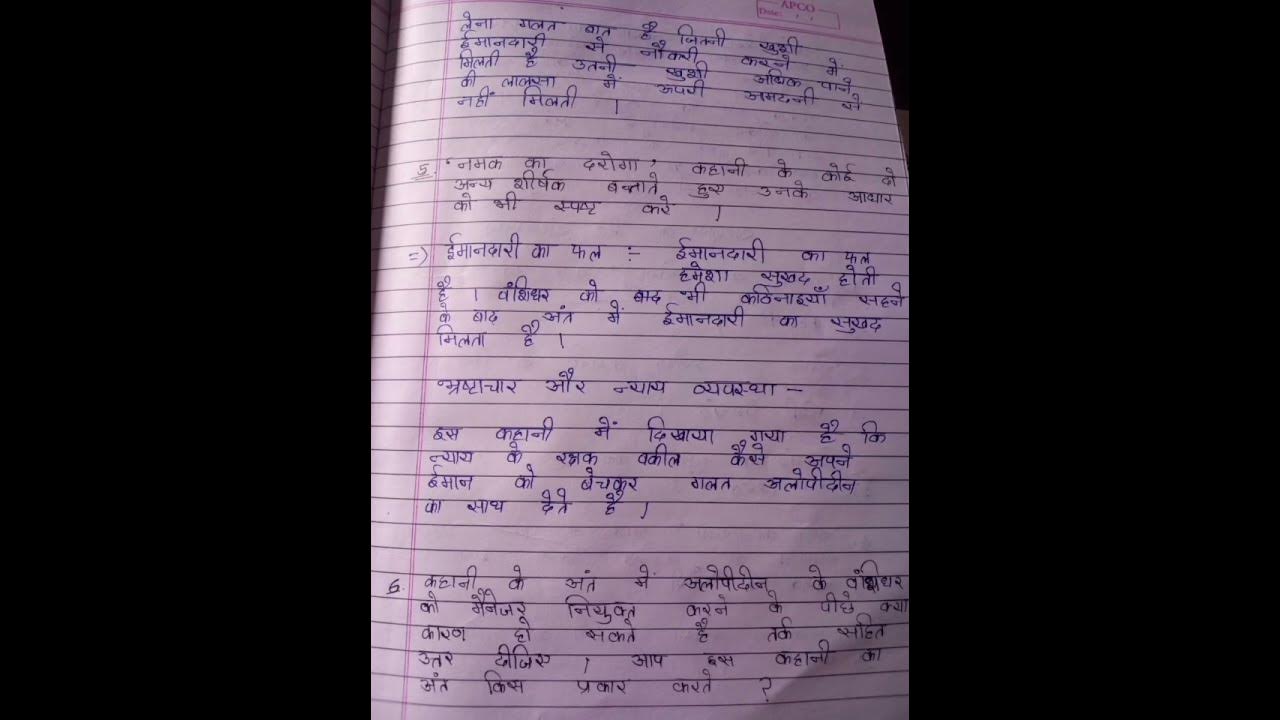 APCO
Date:
लेना गलत बात है जितनी खुशी
ईमानदारी से नौकरी करने में
मिलती है उतनी खुशी अधिक पाने
की लालसा में अपरी अमदनी से
नहीं मिलती ।
5. 'नमक का दरोगा' कहानी के कोई दो
अन्य शीर्षक बताते हुए उनके आधार
को भी स्पष्ट करे ।
=) ईमानदारी का फल :- ईमानदारी का फल
हमेशा सुखद होती
है । वंशिधर को बाद भी कठिनाइयाँ सहने
के बाद अंत में ईमानदारी का सुखद
मिलता है ।
भ्रष्टाचार और न्याय व्यपस्था -
इस कहानी में दिखाया गया है कि
न्याय के रक्षक वकील कैसे अपने
ईमान को बेचकर गलत अलोपीदीन
का साथ देते है ।
6. कहानी के अंत में अलोपीदीन के वंशिधर
को मैनेजर नियुक्त करने के पीछे क्या
कारण हो सकते है तर्क सहित
उत्तर दीजिए । आप इस कहानी का
अंत किस प्रकार करते ?